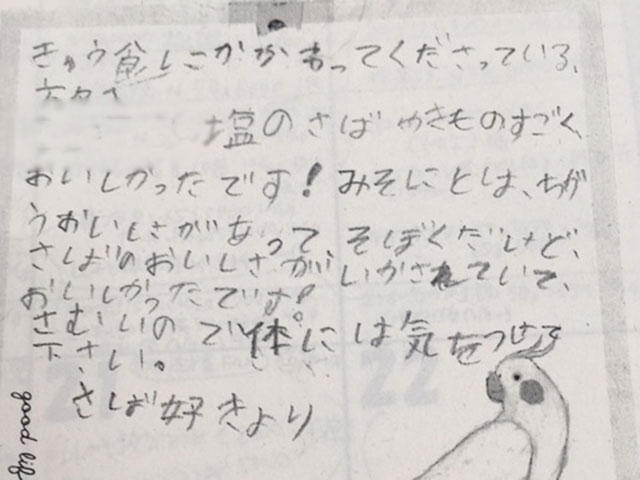 きゅう食にかかわってくださっている、
方々へ
塩のさばやきものすごく、
おいしかったです！みそにとは、ちが
うおいしさがあって、そぼくだけど、
さばのおいしさが、いかされていて、
おいしかったです！
さむいので体には気をつけて
下さい。
さば好きより
good lif
22